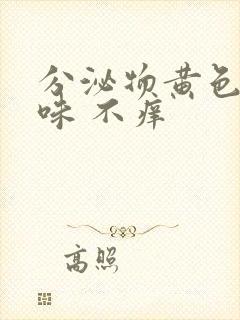 分泌物黄色
味 不痒
高照